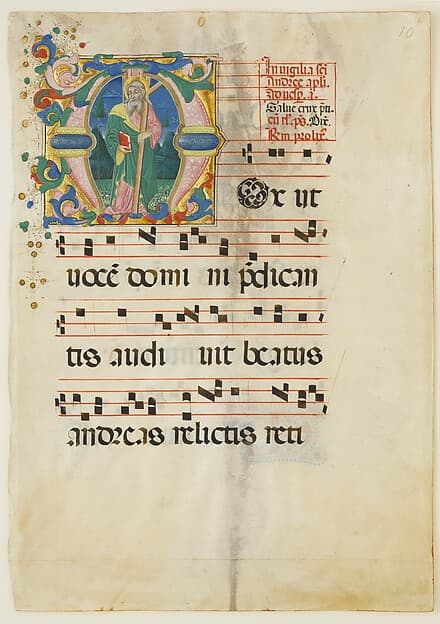 10
In uigilia sci
Andree apli.
Ad uesp. a.
Salue crux p̃ti
cũ ℟. pͦ. Dix.
℟m prolix.
Ox ut
uocẽ domi ni p̃dican
tis audi uit beatus
andreas relictis reti